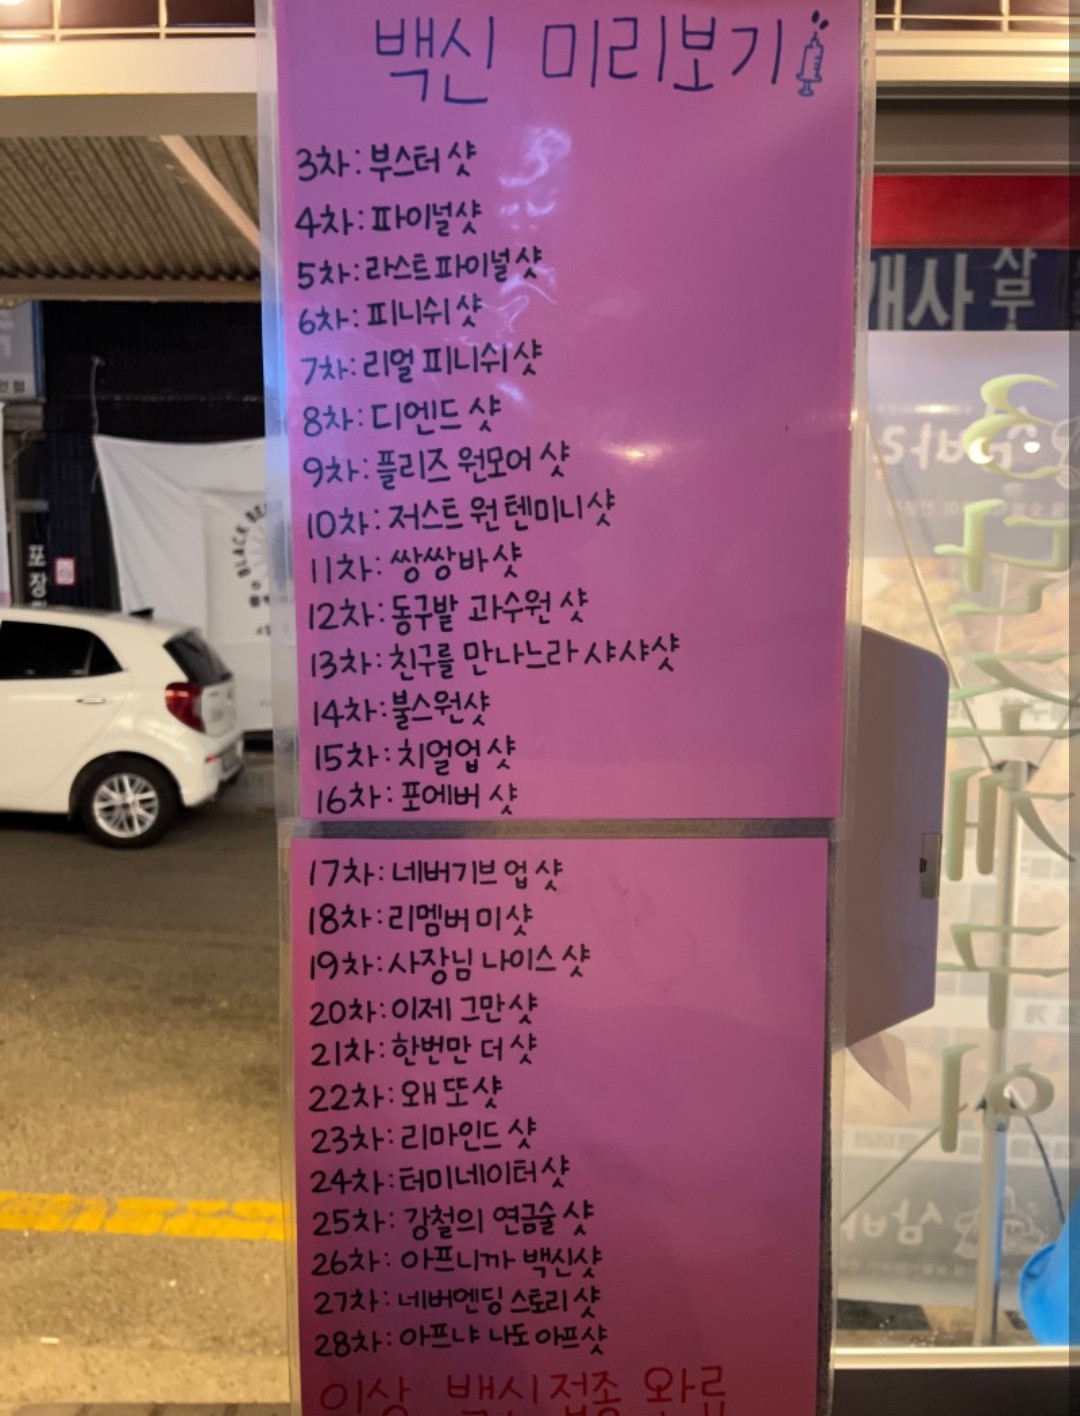 백신 미리보기
3차: 부스터 샷
4차: 파이널샷
5차: 라스트파이널샷
6차: 피니쉬 샷
7차: 리얼 피니쉬 샷
8차: 디엔드 샷
9차: 플리즈 원모어 샷
10차: 저스트 원 텐미니샷
11차: 쌍쌍바 샷
12차: 동구밭 과수원 샷
13차: 친구를 만나느라 샤샤샷
14차: 불스원샷
15차: 치얼업 샷
16차: 포에버 샷
17차: 네버기브 업 샷
18차: 리멤버 미샷
19차: 사장님 나이스 샷
20차: 이제 그만 샷
21차: 한번만 더 샷
22차: 왜 또 샷
23차: 리마인드 샷
24차: 터미네이터 샷
25차: 강철의 연금술 샷
26차: 아프니까 백신샷
27차: 네버엔딩 스토리 샷
28차: 아프냐 나도 아프샷
이상 백신접종 완료
개사
BLACK BE
포장